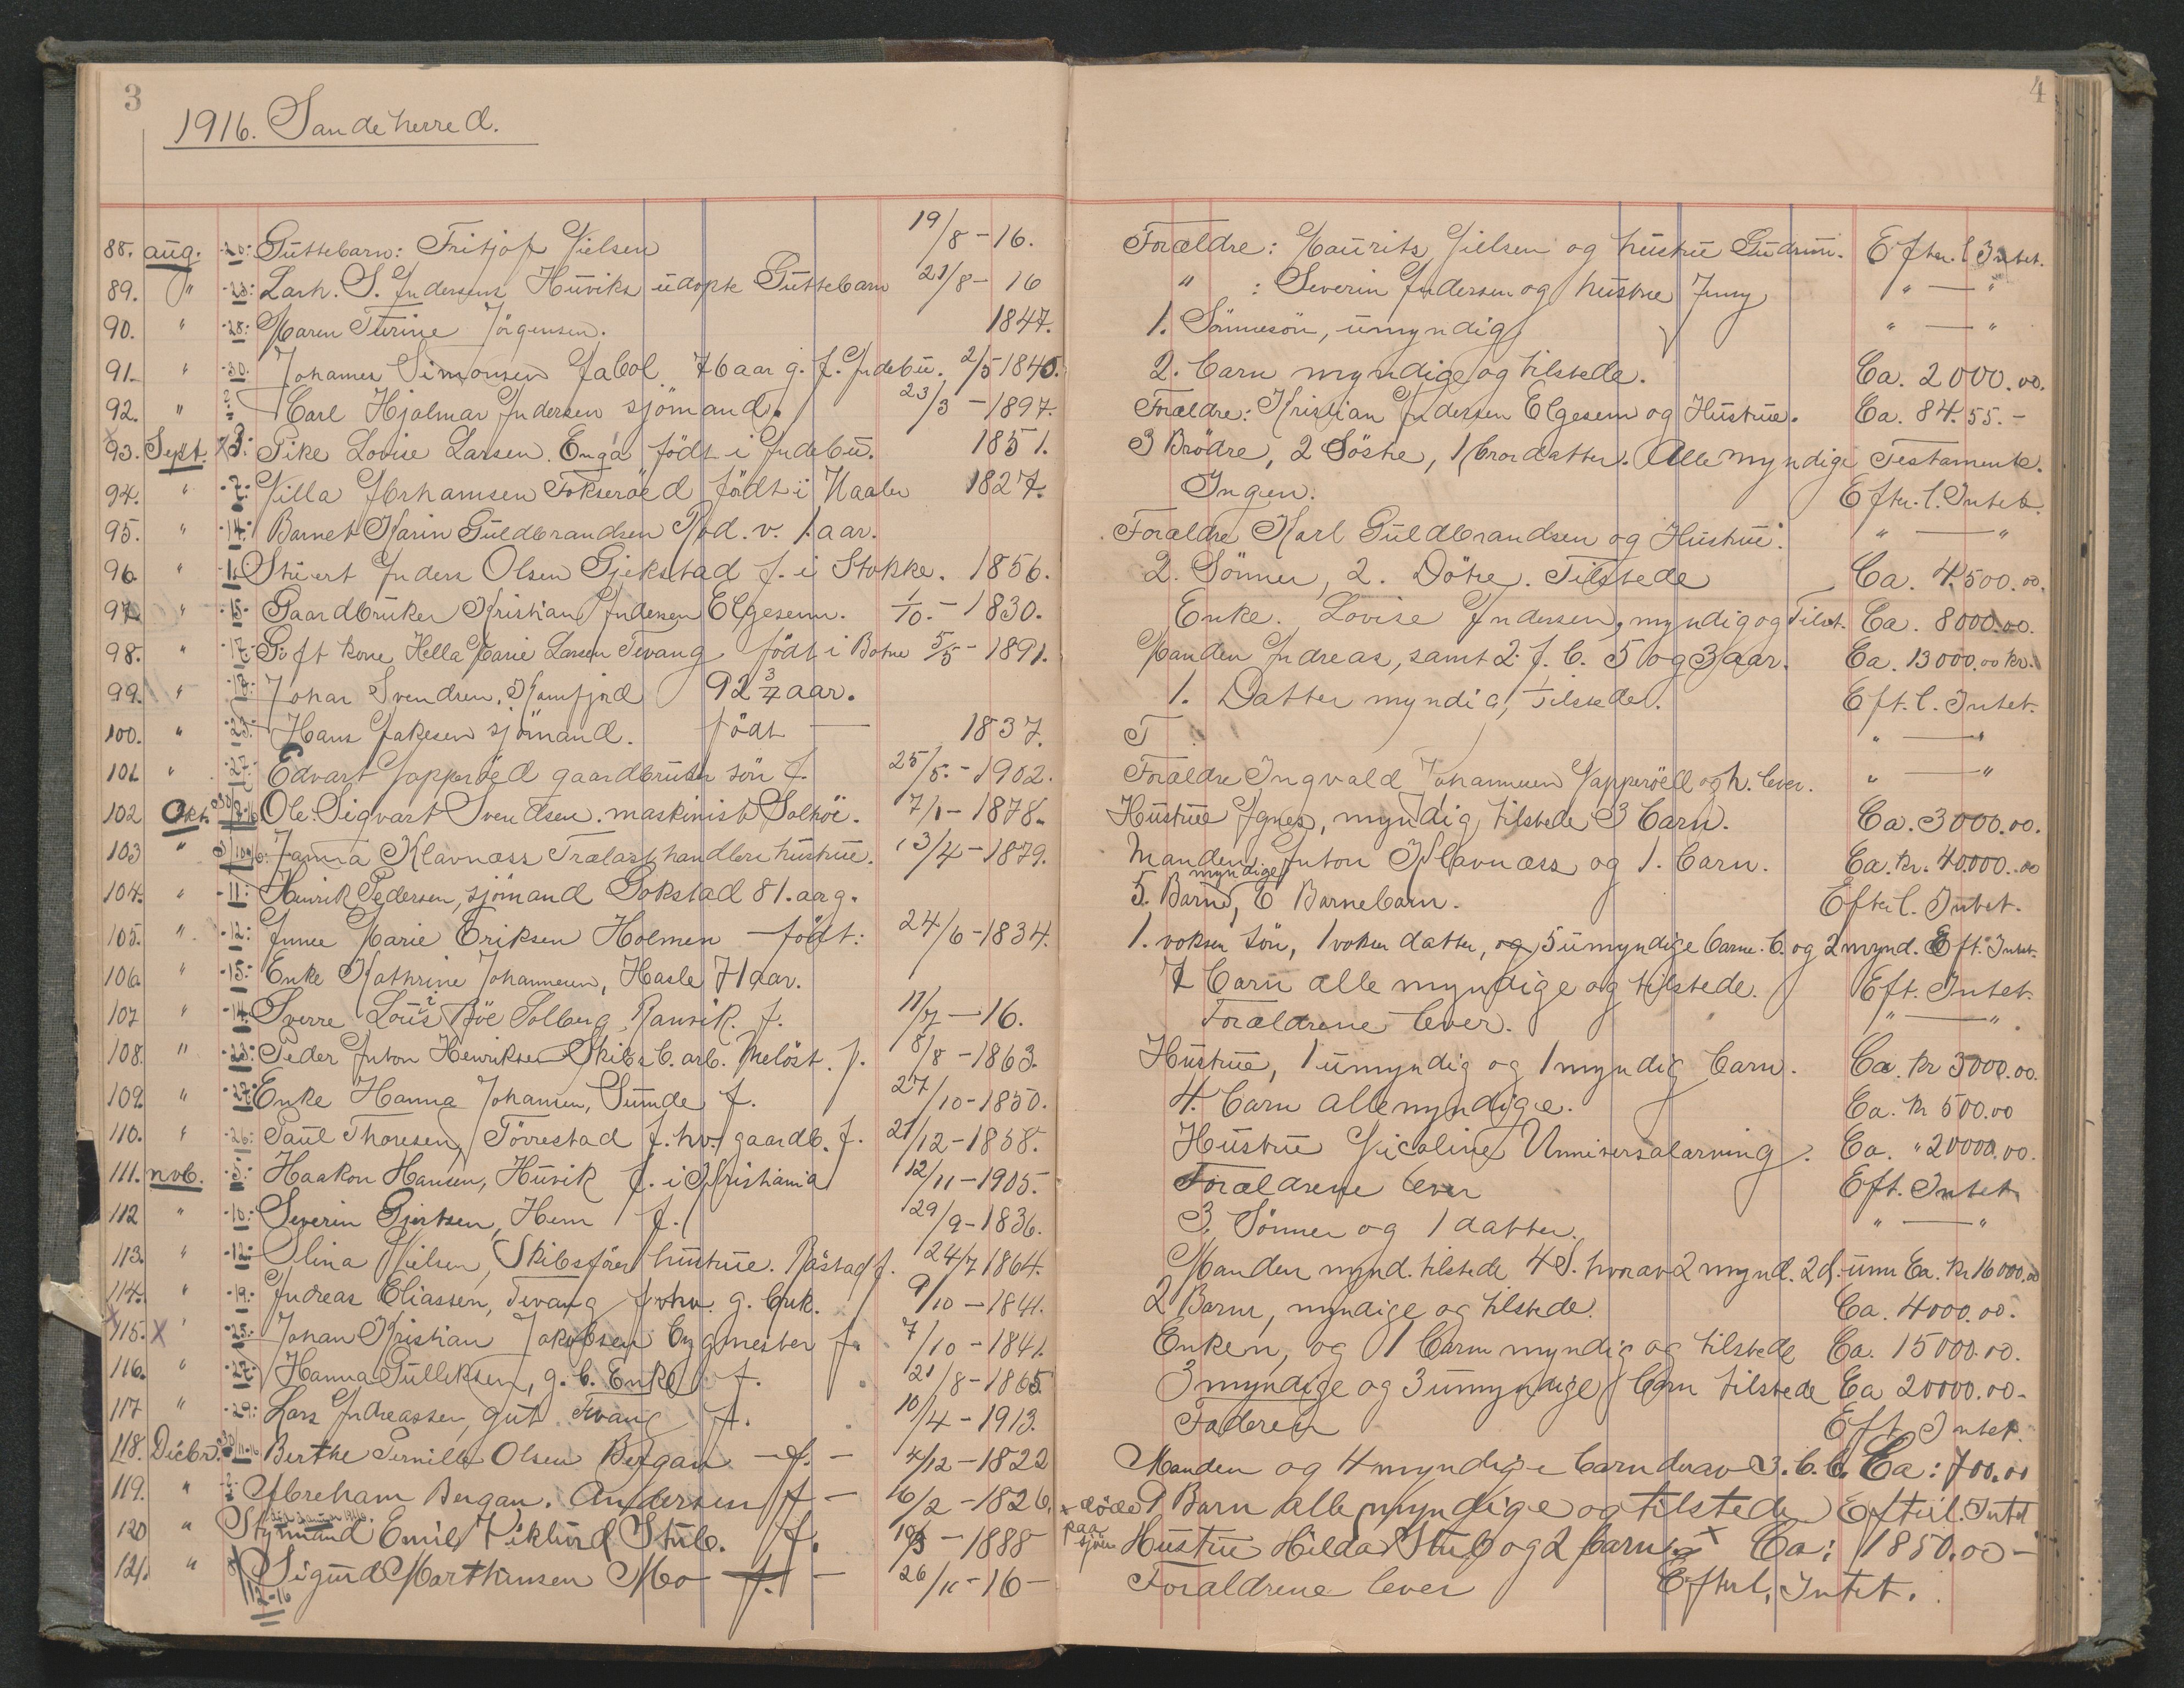 3
4
1916. Sandeherred.
88. aug. -20: Guttebarn: Fritjof Nielsen 19/8-16. Forældre: Maurits Nielsen og hustru Gudrun. Efter. l Intet.
89. " -23: S. Andersens Huviks udøpte Guttebarn 21/8-16 " : Severin Andersen og hustru Jenny "—"
90. " -28: Maren Turine Jörgensen. 1847. 1. Sönnesön, umyndig "—"
91. " -30. Johannes Simonsen 76 aar g. f. Andebu. 2/5 1840. 2. barn myndige og tilstede. Ca. 2000.00.
92. " Carl Hjalmar Andersen sjömand. 23/3-1897. Forældre: Kristian Andersen Elgesem og Hustrue. Ca. 84.55.-
93. Sept. 3: Pike Lovise Larsen. Engå födt i Andebu. 1851. 3 Brödre, 2 Söstre, 1 brordatter. Alle myndige Testamente.
94. " -7: Nilla Abrahamsen Fokseröed födt i Vaaler 1827. Ingen. Efter. l. Intet.
95. " -14: Barnet Karin Guldbrandsen Rød. v. 1. aar. Forældre Karl Guldbrandsen og Hustrue. "—"
96. " Anders Olsen Gjekstad f. i Stokke. 1856. 2. Sönner, 2. Dötre. Tilstede Ca. 4.500.00.
97 " -15- Gaardbruker Kristian Andersen Elgesem. 1/10.-1830. Enke. Lovise Andersen, myndig og Tilst. Ca. 8000.00.
98. " -17- Gift kone, Hella Marie Larsen Tevang födt i Botne 5/5-1891. Manden Andreas, samt 2. f. b. 5 og 3 aar. Ca. 13000.00 kr.
99. " -17- Johan Svendsen. Kamfjord 92 3/4 aar. 1. Datter myndig, tilstede. Eft. l. Intet.
100. " -23: Hans Jakesen sjömand. födt — 1837. T "—"
101 " -27: Edvart Napperöed gaardbruker sön f. 25/5.-1902. Forældre Ingvald Johannesen Napperöed og h. lever. "—"
102 Okt. Ole Sigvart Svendsen. maskinist Solhöi. 7/1-1878. Hustrue Agnes, myndig tilstede 3 barn. Ca. 3000.00.
103 " Janna Klavnæss Trælasthandlers hustrue. 13/4-1879. Manden Anton Klavnæss og 1. barn. Ca. kr. 40000.00
104. " -11: Henrik Pedersen, sjömand Gokstad 81. aar g. 5. myndige Barn, 6 Barnebarn. Efterl. Intet.
105. " -12: Anne Marie Eriksen Holmen födt: 24/6-1834. 1. voksen sön, 1 voksen datter, og 5 umyndige barne. b. og 2 mynd. Eft. Intet.
106. " -15: Enke Kathrine Johannesen, Hasle 71 aar. 7 barn alle myndige og tilstede. Eft. Intet.
107 " -14: Sverre Louis Böe Solberg, Ranvik. f. 11/7-16. Forældrene lever. "—".
108. " -23: Peder Anton Henriksen Skibs b. arb. Melöst. f. 8/8-1863. Hustrue, 1 umyndig og 1 myndig barn. Ca. kr 3000.00.
109. " -27: Enke Hanna Johansen, Sunde f. 27/10-1850. 4. barn alle myndige. Ca. kr 500.00
110. " -26: Paul Thoresen, Törrestad f. hv. gaardb. f. 21/12-1858. Hustrue Nicoline Universalarving. Ca. "20000.00.
111. nvb. -5: Haakon Hansen, Huvik f. i Kristiania 12/11-1905. Forældrene lever Eft. Intet
112 " -10: Severin Gjertsen, Hem f. 29/9-1836. 3. Sönner og 1 datter. "—"
113. " -12: Olina Nielsen, Skibsförer hustrue. Råstad f. 24/7 1864. Manden mynd. tilstede 4 S. hvorav 2 mynd. 2 d. umn Ca. kr 16000.00
114. " -19: Andreas Eliassen, Tevang forhv. g. bruk. 9/10-1841. 2 Barn, myndige og tilstede. Ca. 4000.00.
x 115. x " -25: Johan Kristian Jakobsen bygmester f. 7/10-1841. Enken, og 1 barn myndig og tilstede Ca. 15000.00.
116. " -27: Hanna Gulliksen, g. b. Enke f. 21/8-1865. 3 myndige og 3 umyndige barn tilstede Ca 20000.00-
117 " -29: Lars Andreassen, gut Tevang f. 10/4-1913. Faderen Eft. Intet.
118. Decbr. Berthe Pernille Olsen Bergan -f.- 4/12-1822 Manden og 4 myndige barn derav 3. b. b. Ca: 700.00
119. " -2: Abreham Bergan. Andersen f- 6/2-1826. 9 Barn alle myndige og tilstede Efterl. Intet
120 " Styrmand Emil Stub. f. 10/3-1888 x döde paa sjöen Hustrue Hilda Stub og 2 barn. x Ca: 1850.00-
121. " 9/12-16 Sigurd Marthinsen Mo f.- 26/11-16- Forældrene lever Efterl. Intet.